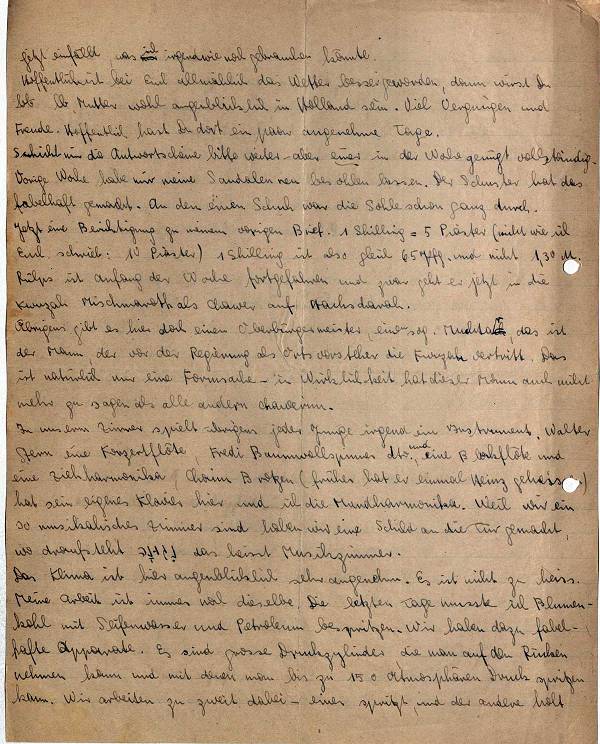 jetzt einfällt, was ich irgendwie noch gebrauchen könnte.
Hoffentlich ist bei Euch allmählich das Wetter besser geworden, dann wirst Du
lb Mutter wohl augenblicklich in Holland sein. Viel Vergnügen und
Freude. Hoffentlich hast Du dort ein paar angenehme Tage.
Schickt mir die Antwortscheine bitte weiter - aber einer in der Woche genügt vollständig.
Vorige Woche habe mir meine Sandalen neu besohlen lassen. Der Schuster hat das
fabelhaft gemacht. An den einen Schuh war die Sohle schon ganz durch.
Jetzt eine Berichtigung zu meinem vorigen Brief. 1 Shilling = 5 Piaster (nicht wie ich
Euch schrieb: 10 Piaster) 1 Shilling ist also gleich 65 Pfg. und nicht 1,30 M.
ist anfang der Woche fortgefahren und zwar geht er jetzt in die
Kwuzah Mischmaroth als Chawer auf Hachscharah.
Übrigens gibt es hier doch einen Oberbürgermeister, einen sog. Muchtar, das ist
der Mann, der vor der Regierung als Ortsvorsteher die Kwuzah vertritt. Das
ist natürlich nur eine Formsache - in Wirklichkeit hat dieser Mann auch nicht
mehr zu sagen als alle andern chawerim.
In unserm Zimmer spielt übrigens jeder Junge irgend ein Instrument. Walter
Stern eine Konzertflöte, Fredi Baumwollspinner dto. und eine Blockflöte und
eine Ziehharmonika, Chaim Brotzen (früher hat er einmal Heinz geheissen)
hat sein eigenes Klavier hier und ich die Mundharmonika. Weil wir ein
so musikalisches Zimmer sind haben wir eine Schild an die Tür gemacht,
wo draufsteht das heisst Musikzimmer.
Das Klima ist hier augenblicklich sehr angenehm. Es ist nicht zu heiss.
Meine Arbeit ist immer noch dieselbe. Die letzten Tage musste ich Blumen-
kohl mit Seifenwasser und Petroleum bespritzen. Wir haben dazu fabel-
hafte Apparate. Es sind grosse Druckzylinder die man auf den Rücken
nehmen kann und mit denen man bis zu 150 Atmosphären Druck spritzen
kann. Wir arbeiten zu zweit dabei - einer spritzt und der andere holt